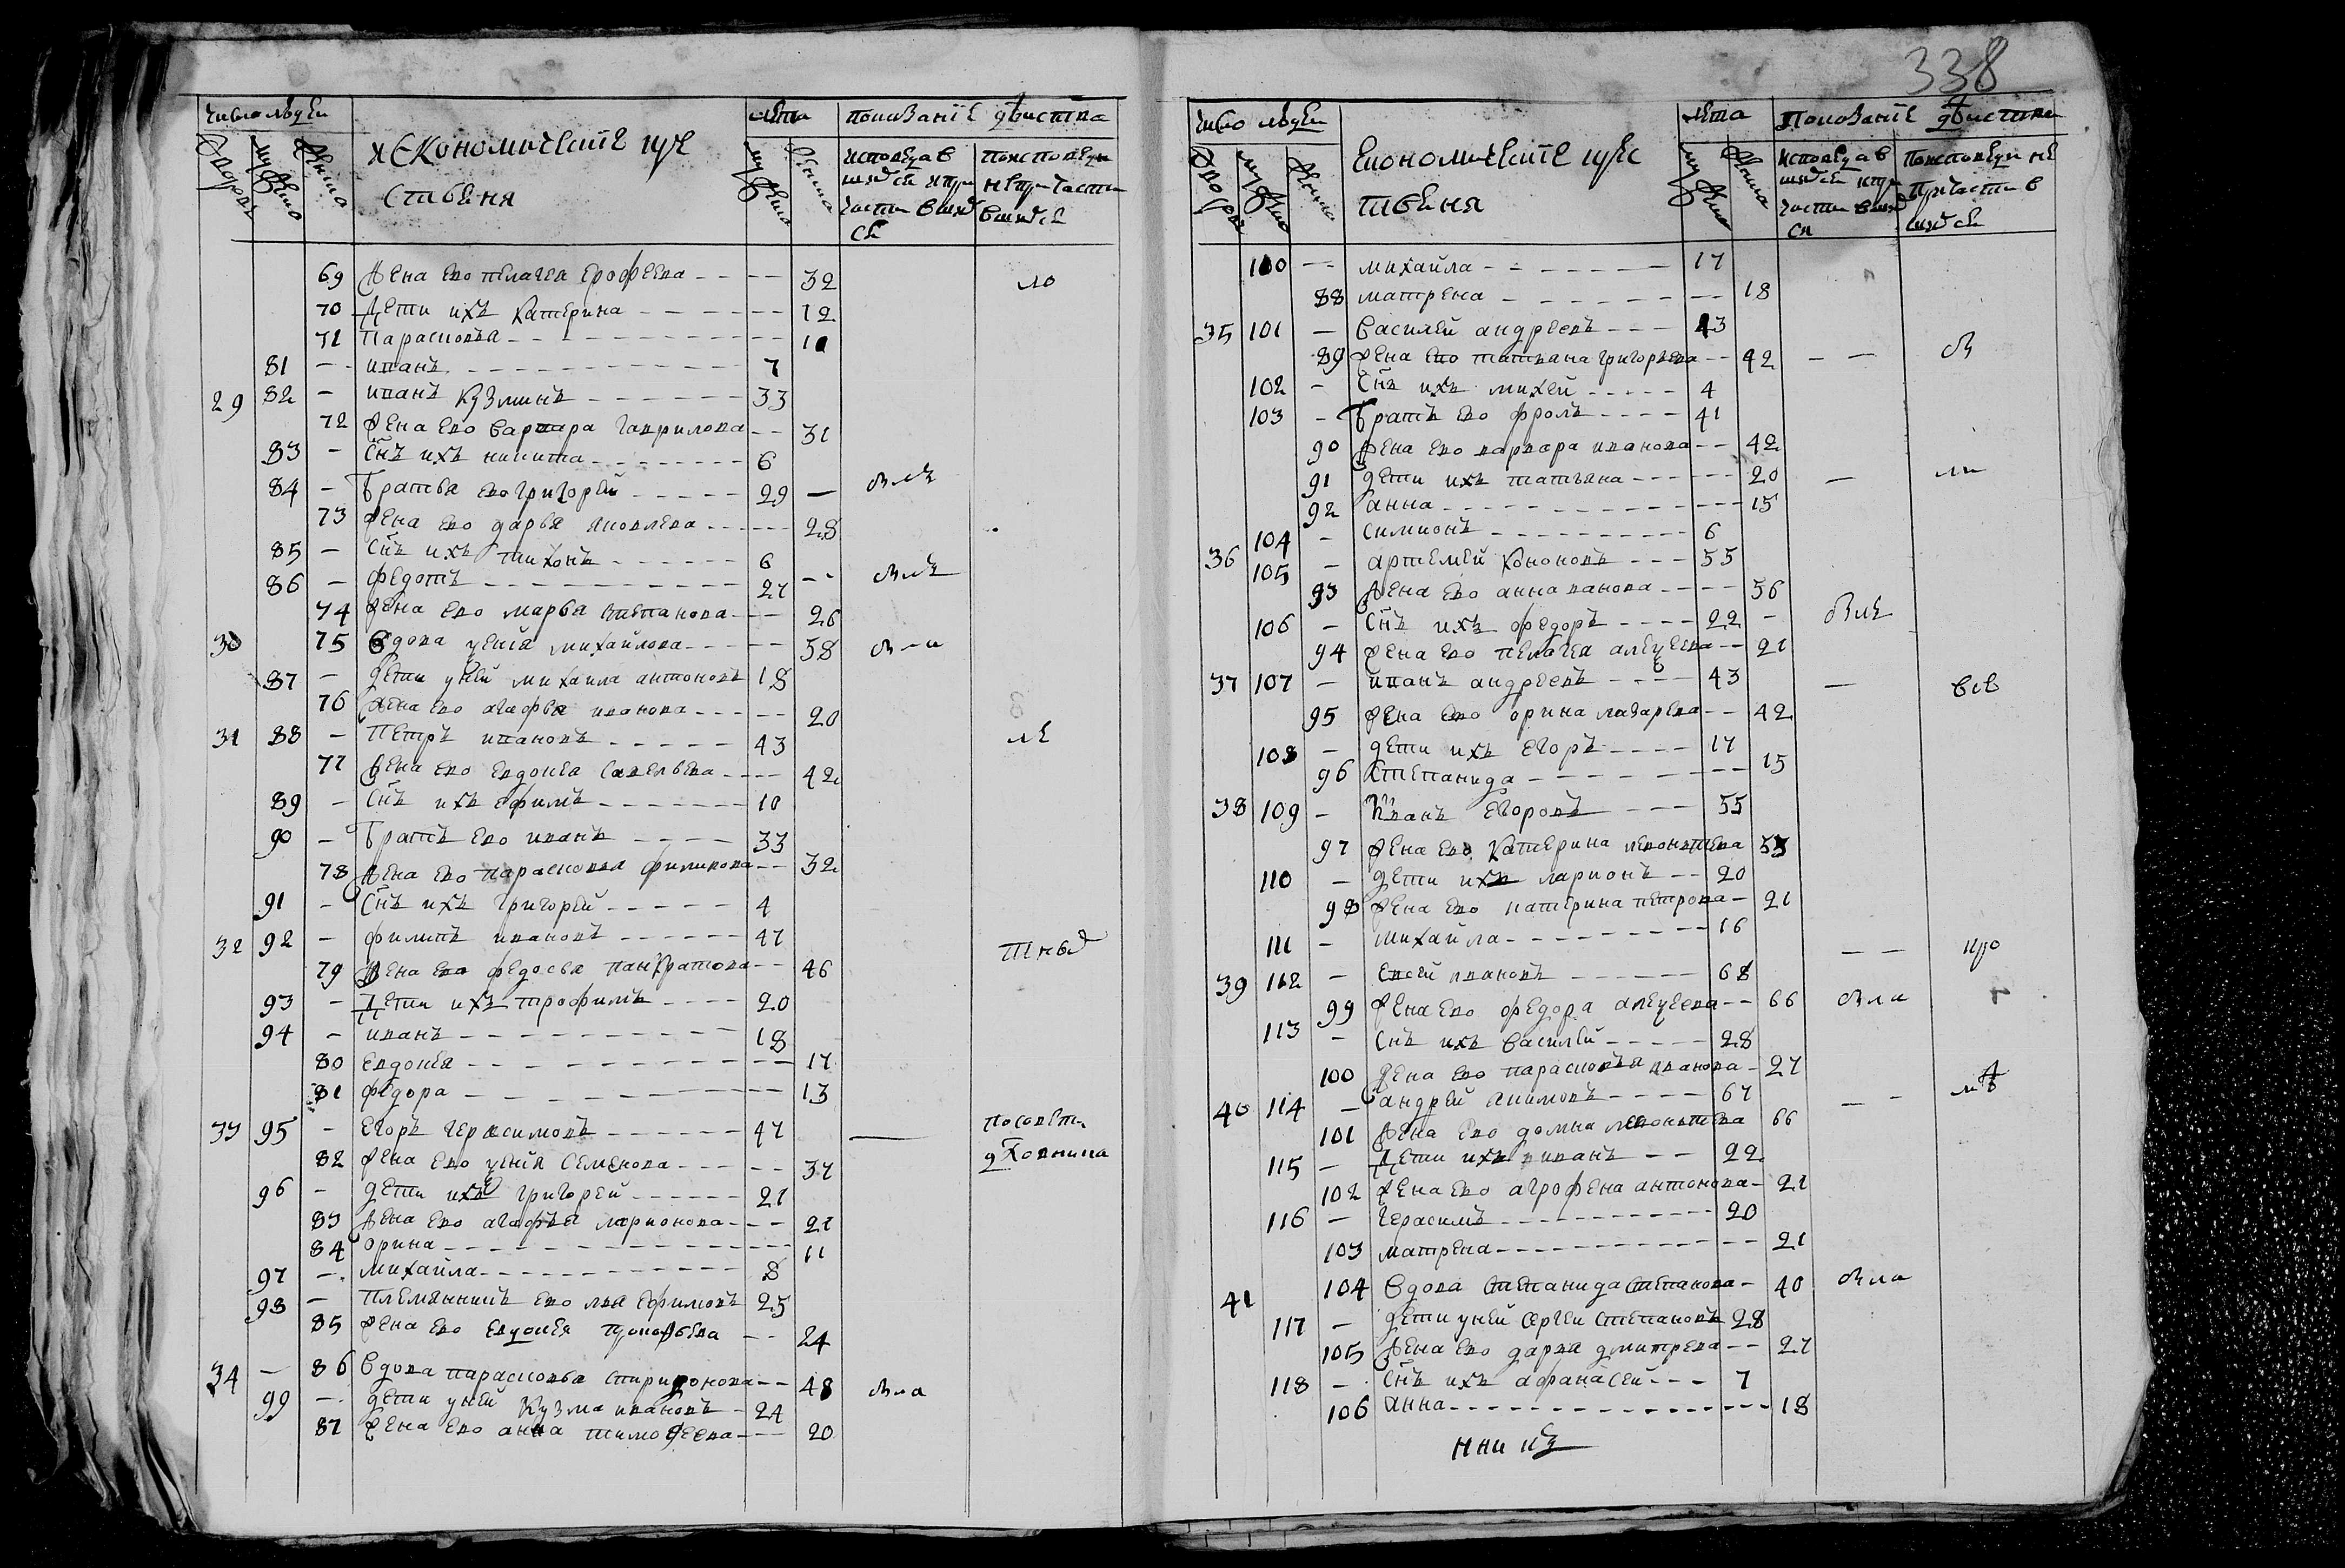 число людей
лѣта
показанїе дѣиства
дворов
мужеска
женска
хЕкономическїе кре
стьвеня
мужеска
женска
исповедав
шиdся и при
части вшиd
ся
поисповеди
не причасти
вшиdся
69 жена ево пелагея ерофеева 32
70 дети ихъ катерина 12
71 парасковья 10
81 - иванъ 7
29 82 - иванъ кузминъ 33
72 жена ево варвара гаврилова 31
83 - Снъ ихъ никита 6
84 - братья ево григорей 29
73 жена ево дарья яковлева 28
85 - Снъ ихъ тихонъ 6
86 - федотъ 27
74 жена ево марья степанова 26
30 75 вдова ксенїя михайлова 58
87 - дети уней михаила антоновъ 18
76 жена ево агафья иванова 20
31 88 - Петръ ивановъ 43
77 жена ево евдокея савельева 42
89 - Снъ ихъ ефимъ 10
90 - братъ ево иванъ 33
78 жена ево парасковья филипова 32
91 - Снъ ихъ григорей 4
32 92 - филипъ ивановъ 47
79 жена ево федосья панкратова 46
93 - дети ихъ трофимъ 20
94 - иванъ 18
80 евдокея 17
81 федора 13
33 95 - егоръ герасимовъ 47 посовету
82 жена ево ксенїя семенова 37 духовника
96 - дети ихъ григорей 21
83 жена ево агафья ларионова 21
84 орина 11
97 - михайла 8
98 - племянникъ ево лва ефимовъ 25
85 жена ево евдокея прокофьева 24
34 - 86 вдова парасковья спиридонова 48
99 - дети уней кузма ивановъ 24
87 жена ево анна тимофеева 20
338
число людей
лѣта
показанїе дѣиства
дворов
мужеска
женска
економическїе крес
твеня
мужеска
женска
исповедав
шиdся и при
части вшиd
ся
поисповеди не
причасти в
шиdся
100 - михайла 17
88 матрена 18
35 101 - василей андреевъ 43
89 жена ево татьяна григорьева 42
102 - Снъ ихъ михей 4
103 - братъ ево фролъ 41
90 жена ево варвара иванова 42
91 дети ихъ татьяна 20
92 анна 15
104 - симионъ 6
36 105 - артемей кононовъ 55
93 жена ево анна иванова 56
106 - Снъ ихъ федоръ 22
94 жена ево пелагея алексеева 21
37 107 - иванъ андреевъ 43
95 жена ево орина лазарева 42
108 - дети ихъ егоръ 17
96 степанида 15
38 109 - иванъ егоровъ 55
97 жена ево катерина леонтьева 53
110 - дети ихъ ларионъ 20
98 жена ево катерина петрова 21
111 - михайла 16
39 112 - евсей ивановъ 68
99 жена ево федора алексеева 66
113 - Снъ ихъ василей 28
100 жена ево парасковья иванова 27
40 114 - андрей якимовъ 67
101 жена ево домна леонтьева 66
115 - дети ихъ иванъ 22
102 жена ево агрофена антонова 21
116 - герасимъ 20
103 матрена 21
41 104 вдова степанида степанова 40
117 - дети уней сергей степановъ 28
105 жена ево дарья дмитрева 27
118 - Снъ ихъ афанасей 7
106 анна 18